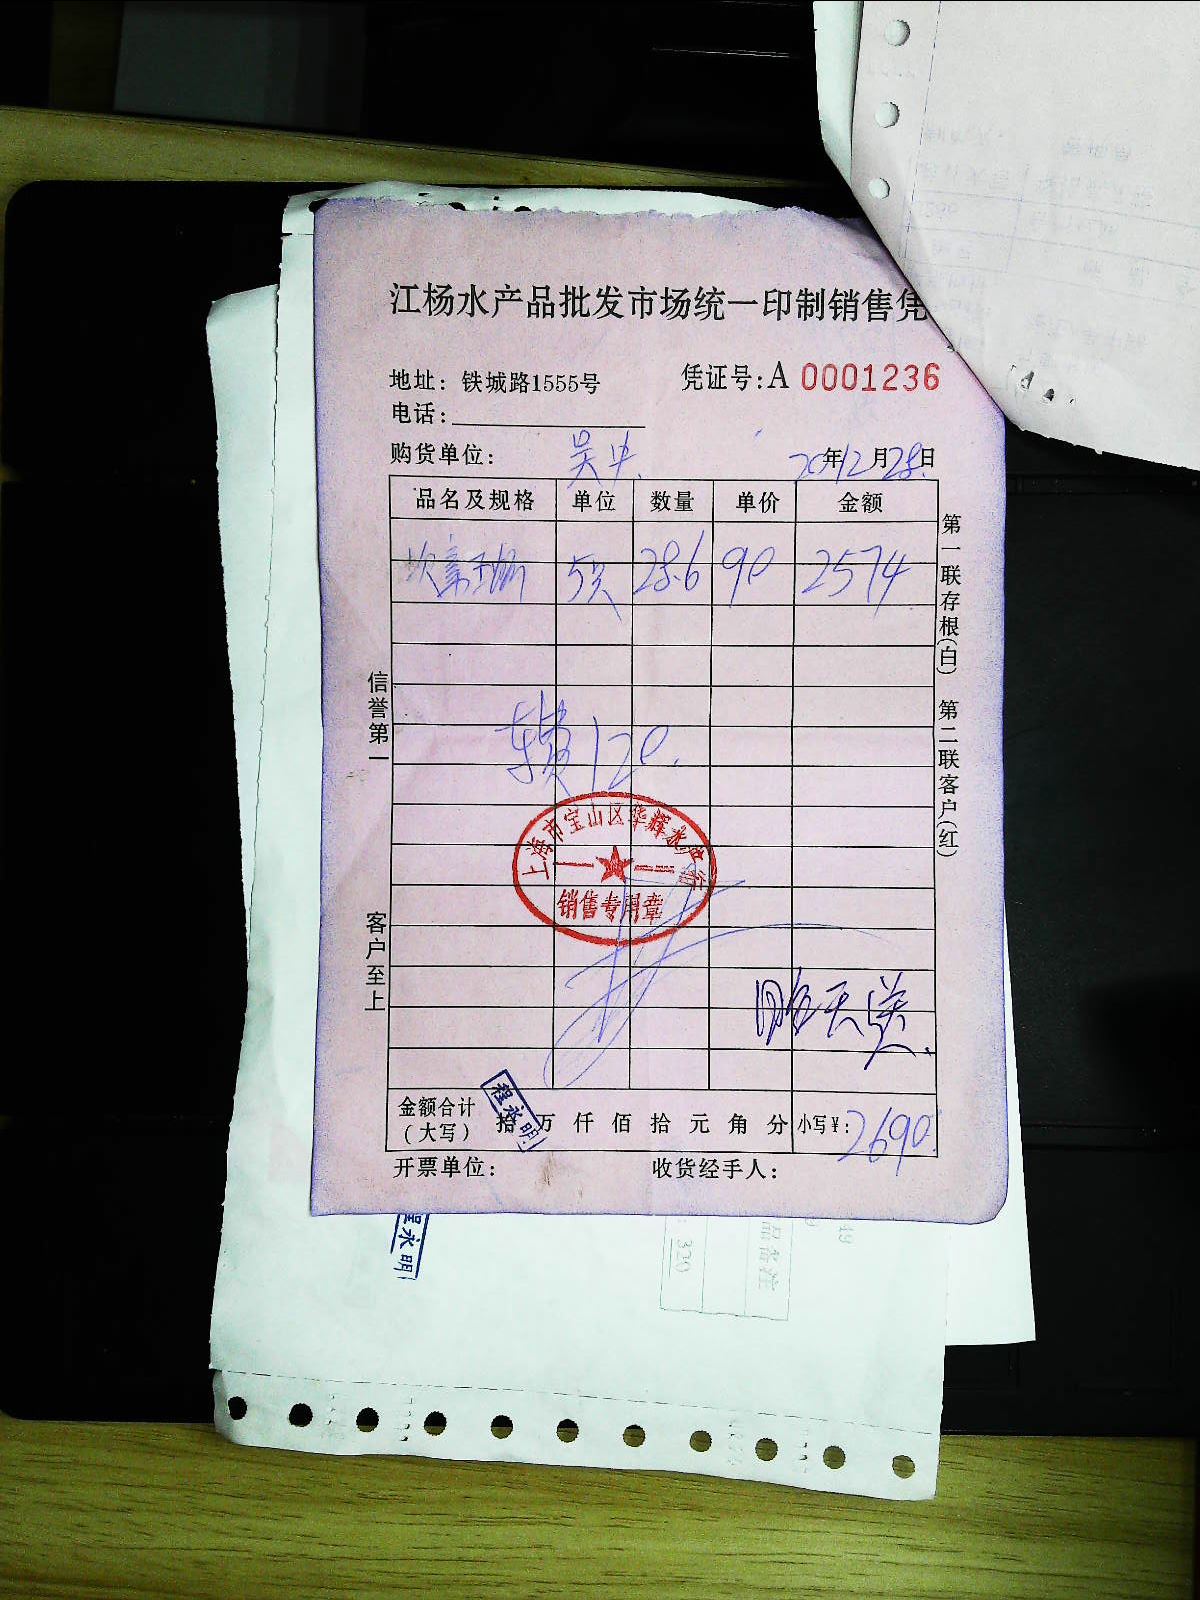 江杨水产品批发市场统一印制销售凭
地址：铁城路1555号
凭证号:A 0001236
电话:
购货单位: 吴中 20年12月28日
品名及规格 单位 数量 单价 金额
28.6 90 2574
车费120.
上海市宝山区华辉水产行
销售专用章
明天送
金额合计（大写） 拾 万 仟 佰 拾 元 角 分 小写¥: 2690
程永明
开票单位: 收货经手人:
信誉第一
客户至上
第一联存根(白) 第二联客户(红)
程永明
品备注
320